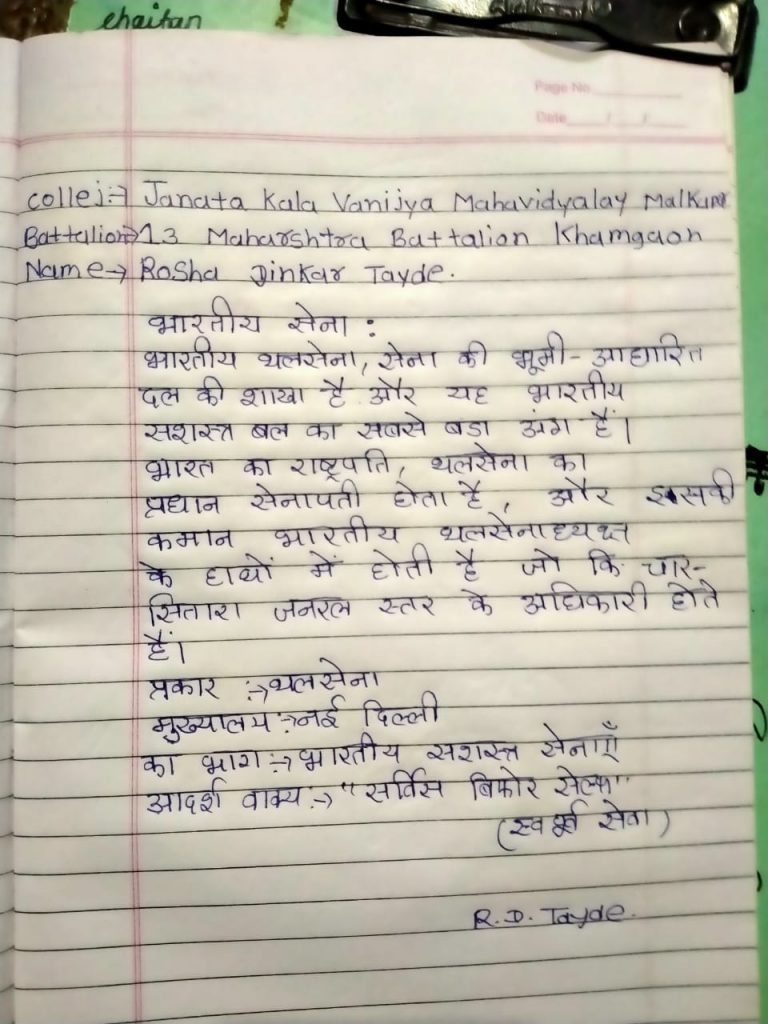 chaitan
Page No
Date / /
collej:→ Janata Kala Vanijya Mahavidyalay Malkapur
Battalion→13 Maharshtra Battalion Khamgaon
Name→ Rosha Dinkar Tayde.
भारतीय सेना :
भारतीय थलसेना, सेना की भूमी-आधारित
दल की शाखा है और यह भारतीय
सशस्त्र बल का सबसे बडा अंग हैं।
भारत का राष्ट्रपति, थलसेना का
प्रधान सेनापती होता है, और इसकी
कमान भारतीय थलसेनाध्यक्ष
के हाथों में होती है जो कि चार-
सितारा जनरल स्तर के अधिकारी होते
हैं।
प्रकार :→थलसेना
मुख्यालय:→नई दिल्ली
का भाग:→भारतीय सशस्त्र सेनाएँ
आदर्श वाक्य:→ "सर्विस बिफोर सेल्फ"
(स्व पूर्व सेवा)
R.D. Tayde.